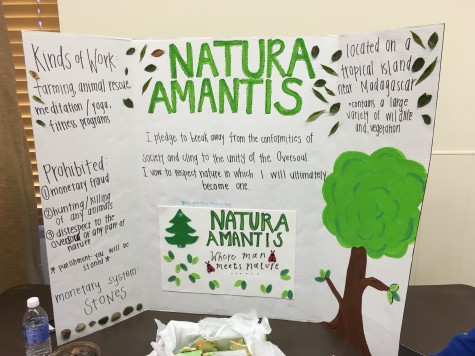 Kinds of Work:
farming, animal rescue
meditation / yoga,
fitness programs
Prohibited:
① monetary fraud
② hunting/killing
of any animals
③ disrespect to the
or any part of
nature
* punishment: you will be
stoned *
monetary system
STONES
NATURA
AMANTIS
I pledge to break away from the conformities of
society and cling to the unity of the Oversoul.
I vow to respect nature in which I will ultimately
become one.
NATURA
AMANTIS
Where man
meets nature
located on a
tropical island
near Madagascar
- contains a large
variety of wildlife
and vegetation